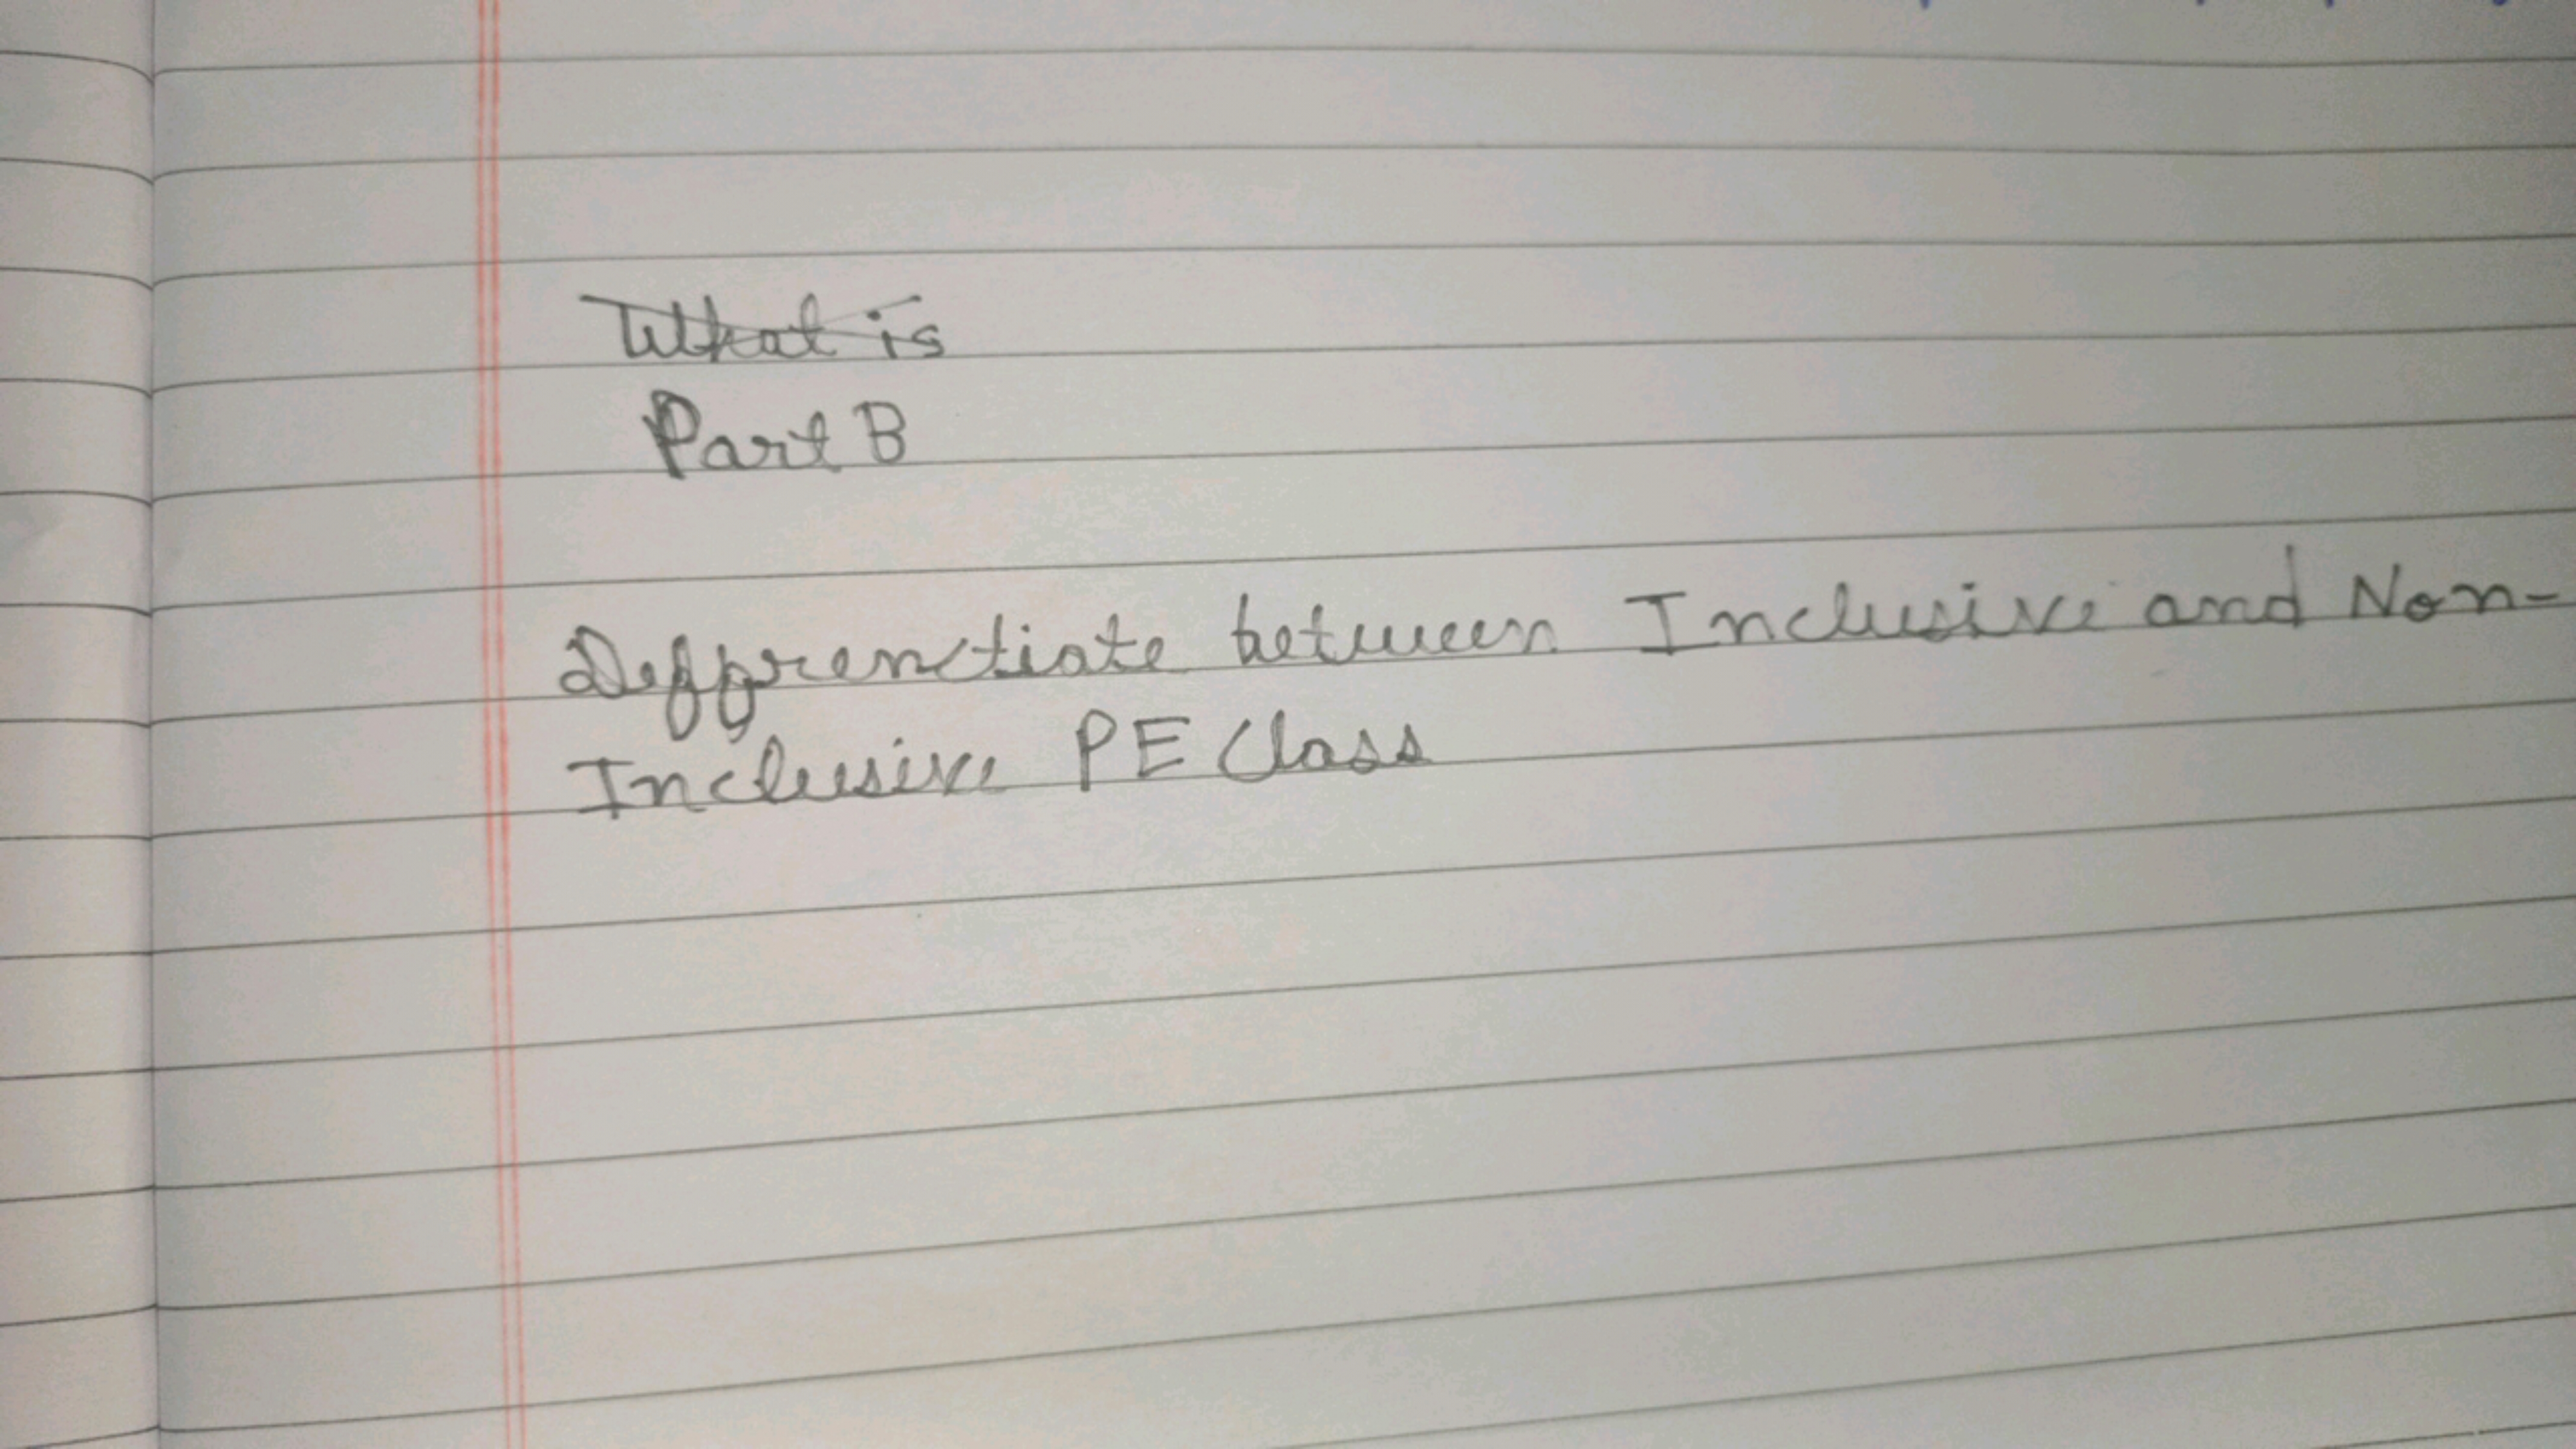 What is
Part B
Deffrenctiate between Inclusive and Non-
Inclusive PE Class